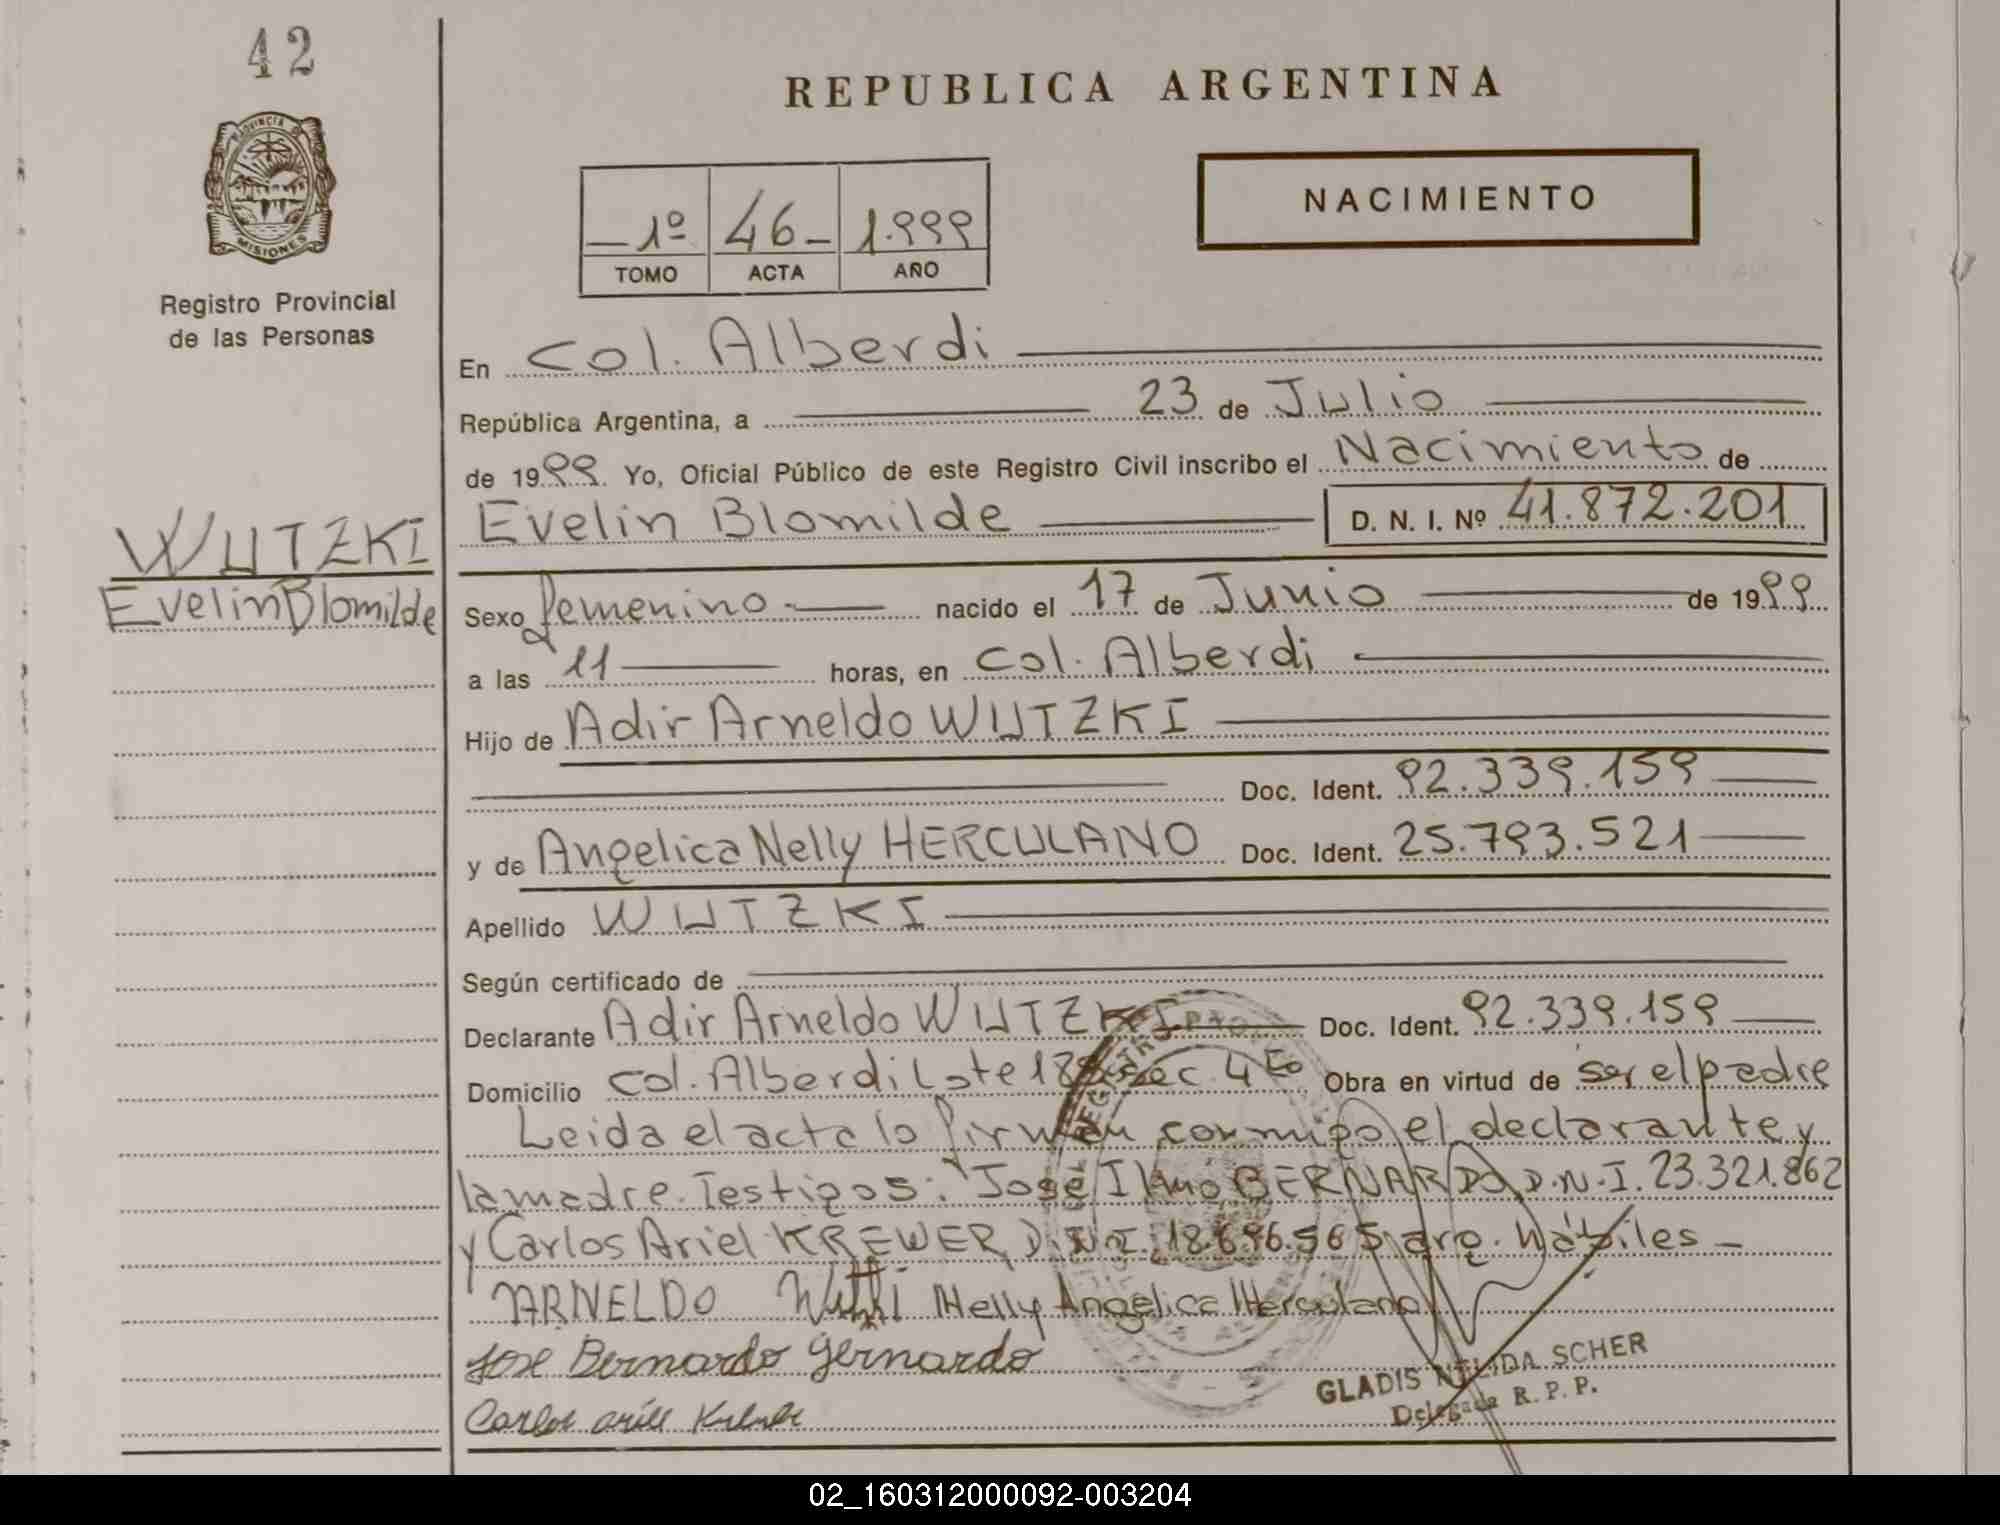 42
PROVINCIA DE
MISIONES
Registro Provincial
de las Personas
WUTZKI
Evelin Blomilde
REPUBLICA ARGENTINA
NACIMIENTO
1º 46 1.999
TOMO ACTA AÑO
En Col. Alberdi
República Argentina, a 23 de Julio
de 1999. Yo, Oficial Público de este Registro Civil inscribo el Nacimiento de
Evelin Blomilde D. N. I. Nº 41.872.201
Sexo femenino nacido el 17 de Junio de 1999
a las 11 horas, en Col. Alberdi
Hijo de Adir Arneldo WUTZKI
Doc. Ident. 92.339.159
y de Angelica Nelly HERCULANO Doc. Ident. 25.793.521
Apellido WUTZKI
Según certificado de
Declarante Adir Arneldo WUTZKI Doc. Ident. 92.339.159
Domicilio Col. Alberdi Lote Sec. 4to Obra en virtud de ser el padre
Leida el acta lo firman conmigo el declarante y
la madre. Testigos: José BERNARDO D.N.I. 23.321.862
y Carlos Ariel KREWER D.N.I. 18.696.565 arg. hábiles
ARNELDO Nelly Angelica Herculano
Jose Bernardo
GLADIS NELIDA SCHER
Delegada R. P. P.
02_160312000092-003204